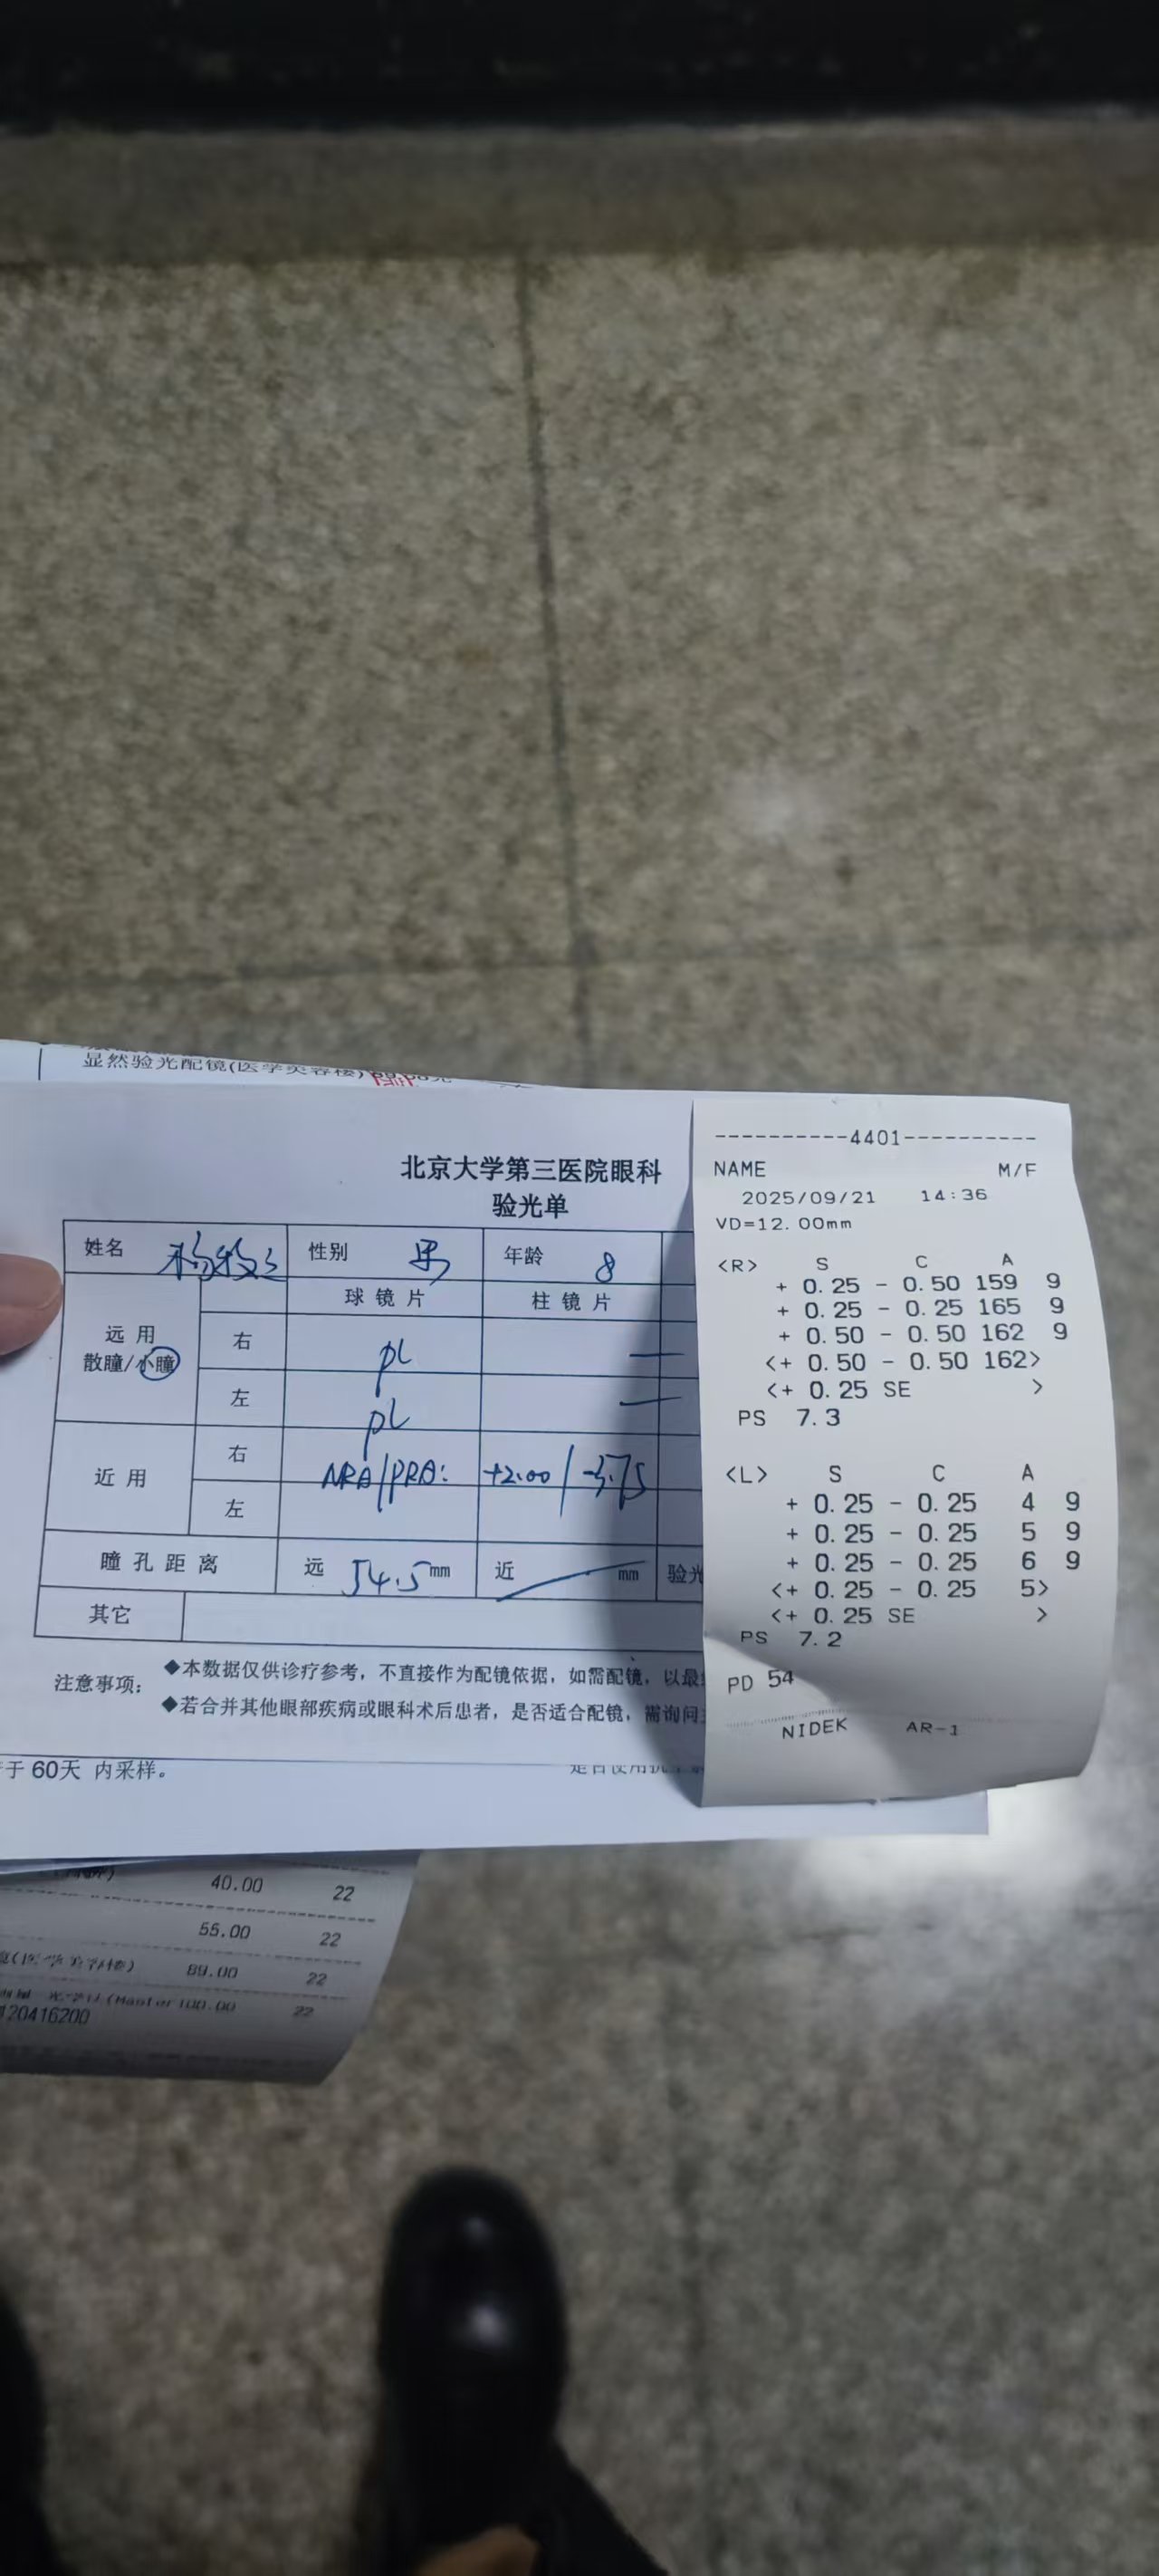 显然验光配镜(医学美容楼)
北京大学第三医院眼科
验光单
姓名 性别 男 年龄 8
球镜片 柱镜片
远用
散瞳/小瞳
右 pl —
左 pl —
近用
右 NRA/PRA: +2.00/-3.75
左
瞳孔距离 远 54.5 mm 近 mm 验光
其它
注意事项: ◆本数据仅供诊疗参考，不直接作为配镜依据，如需配镜，以最
◆若合并其他眼部疾病或眼科术后患者，是否适合配镜，需询问
于 60天 内采样。
----------4401----------
NAME M/F
2025/09/21 14:36
VD=12.00mm
<R> S C A
+ 0.25 - 0.50 159 9
+ 0.25 - 0.25 165 9
+ 0.50 - 0.50 162 9
<+ 0.50 - 0.50 162>
<+ 0.25 SE >
PS 7.3
<L> S C A
+ 0.25 - 0.25 4 9
+ 0.25 - 0.25 5 9
+ 0.25 - 0.25 6 9
<+ 0.25 - 0.25 5>
<+ 0.25 SE >
PS 7.2
PD 54
NIDEK AR-1
40.00 22
55.00 22
89.00 22
(Master 100.00 22
120416200